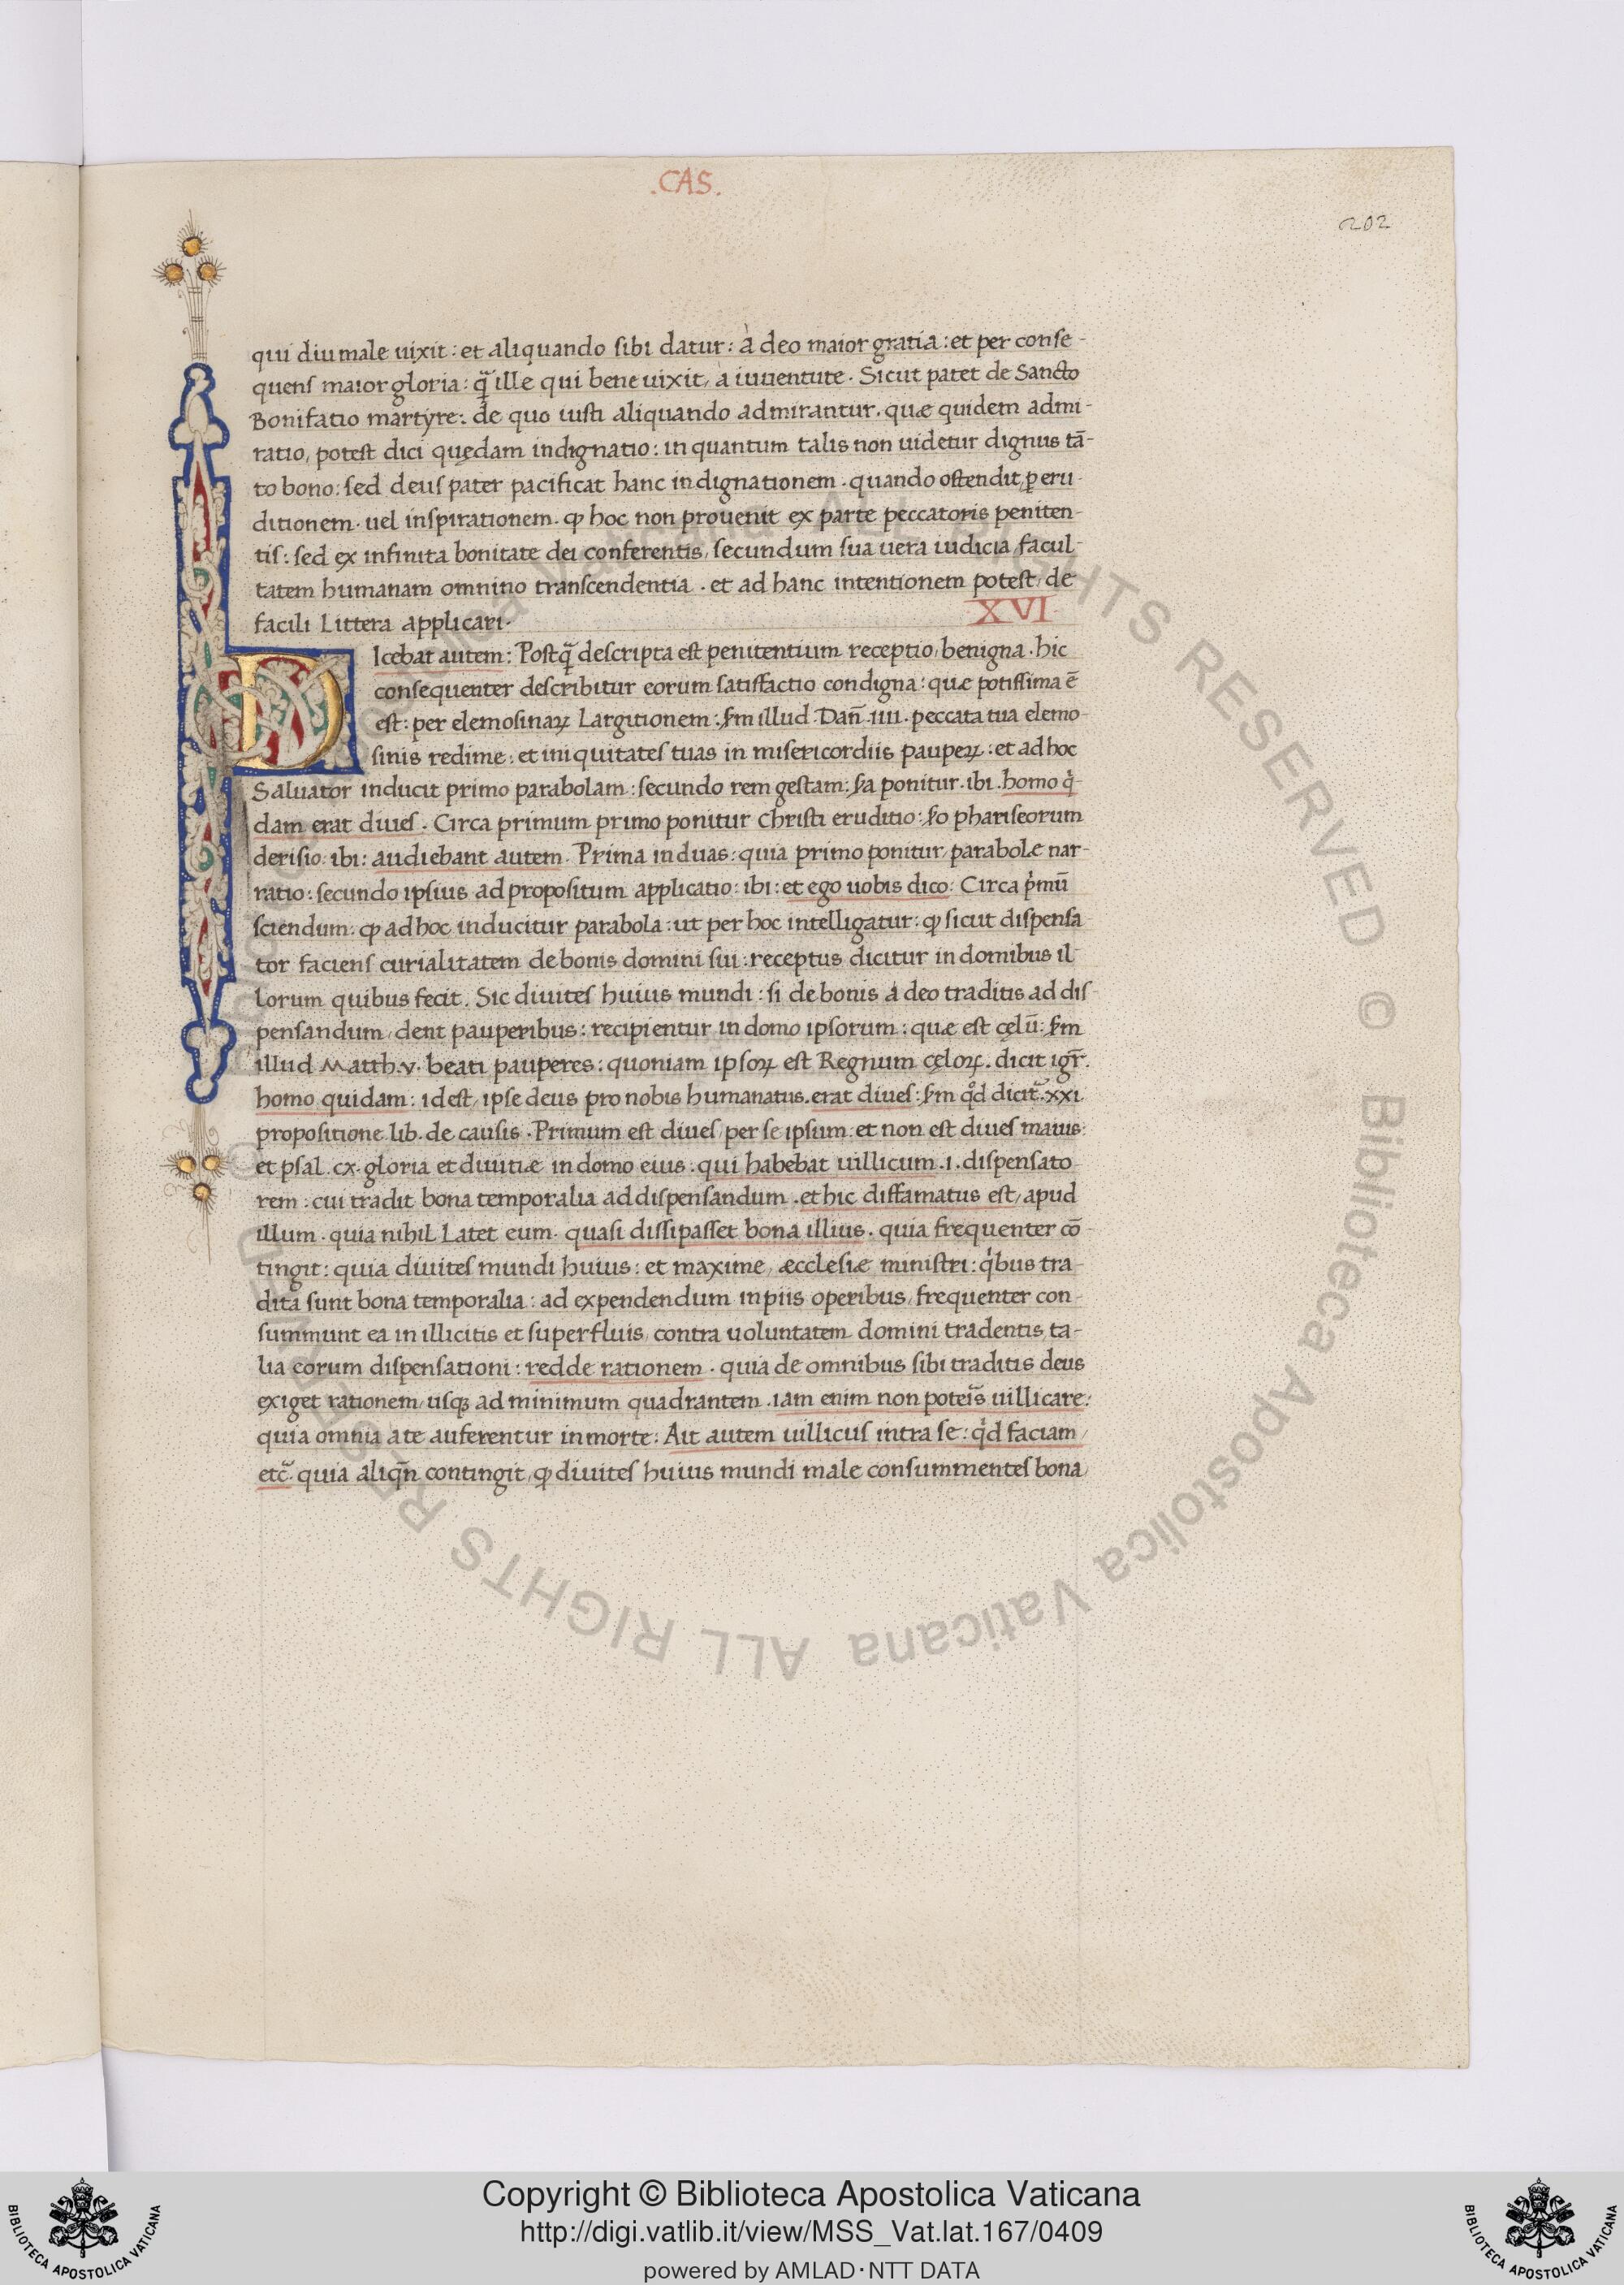 .CAS.
202
qui diu male uixit : et aliquando sibi datur : à deo maior gratia : et per conse-
quens maior gloria : q̃ ille qui bene uixit, a iuuentute. Sicut patet de Sancto
Bonifatio martyre : de quo iusti aliquando admirantur. quæ quidem admi-
ratio, potest dici quędam indignatio : in quantum talis non uidetur dignus tā-
to bono : sed deus pater pacificat hanc indignationem. quando ostendit, ꝑ eru-
ditionem. uel inspirationem. ꝙ hoc non prouenit ex parte peccatoris peniten-
tis : sed ex infinita bonitate dei conferentis, secundum sua uera iudicia, facul-
tatem humanam omnino transcendentia. et ad hanc intentionem potest, de
facili Littera applicari.
XVI
DIcebat autem : Postq̃ descripta est penitentium receptio, benigna. hic
consequenter describitur eorum satisfactio condigna : quæ potissima ē
est : per elemosinaꝝ Largitionem : ẜm illud. Dañ. iiii. peccata tua elemo-
sinis redime : et iniquitates tuas in misericordiis paupeꝝ : et ad hoc
Saluator inducit primo parabolam : secundo rem gestam : ẜa ponitur. ibi. homo q̇-
dam erat diues. Circa primum primo ponitur christi eruditio : ẜo phariseorum
derisio : ibi : audiebant autem. Prima in duas : quia primo ponitur, parabole nar-
ratio : secundo ipsius ad propositum applicatio : ibi : et ego uobis dico : Circa p̍mū
sciendum : ꝙ ad hoc inducitur parabola : ut per hoc intelligatur : ꝙ sicut dispensa
tor faciens curialitatem de bonis domini sui : receptus dicitur in domibus il-
lorum quibus fecit. Sic diuites huius mundi : si de bonis a deo traditis ad dis-
pensandum, dent pauperibus : recipientur in domo ipsorum : quæ est cęlū : ẜm
illud Matth. v. beati pauperes : quoniam ipsoꝝ est Regnum cęloꝝ. dicit igr̃.
homo quidam : idest, ipse deus pro nobis humanatus. erat diues : ẜm qd̊ dicit᷑. xxi
propositione. lib. de causis. Primum est diues, per se ipsum : et non est diues maius :
et psal. cx. gloria et diuitiæ in domo eius : qui habebat uillicum .i. dispensato-
rem : cui tradit bona temporalia ad dispensandum. et hic diffamatus est, apud
illum. quia nihil Latet eum. quasi dissipasset bona illius. quia frequenter cō-
tingit : quia diuites mundi huius : et maxime, æcclesiæ ministri : q̍bus tra-
dita sunt bona temporalia : ad expendendum in piis operibus, frequenter con-
summunt ea in illicitis et superfluis, contra uoluntatem domini tradentis, ta-
lia eorum dispensationi : redde rationem. quia de omnibus sibi traditis deus
exiget rationem, usqꝫ ad minimum quadrantem. iam enim non potei̅s uillicare :
quia omnia a te auferentur in morte : Ait autem uillicus intra se : q̍d faciam,
etc̃. quia aliqn̄ contingit, ꝙ diuites huius mundi male consummentes bona
Copyright © Biblioteca Apostolica Vaticana
http://digi.vatlib.it/view/MSS_Vat.lat.167/0409
powered by AMLAD·NTT DATA
BIBLIOTECA APOSTOLICA VATICANA
BIBLIOTECA APOSTOLICA VATICANA
© Biblioteca Apostolica Vaticana ALL RIGHTS RESERVED © Biblioteca Apostolica Vaticana ALL RIGHTS RESERVED